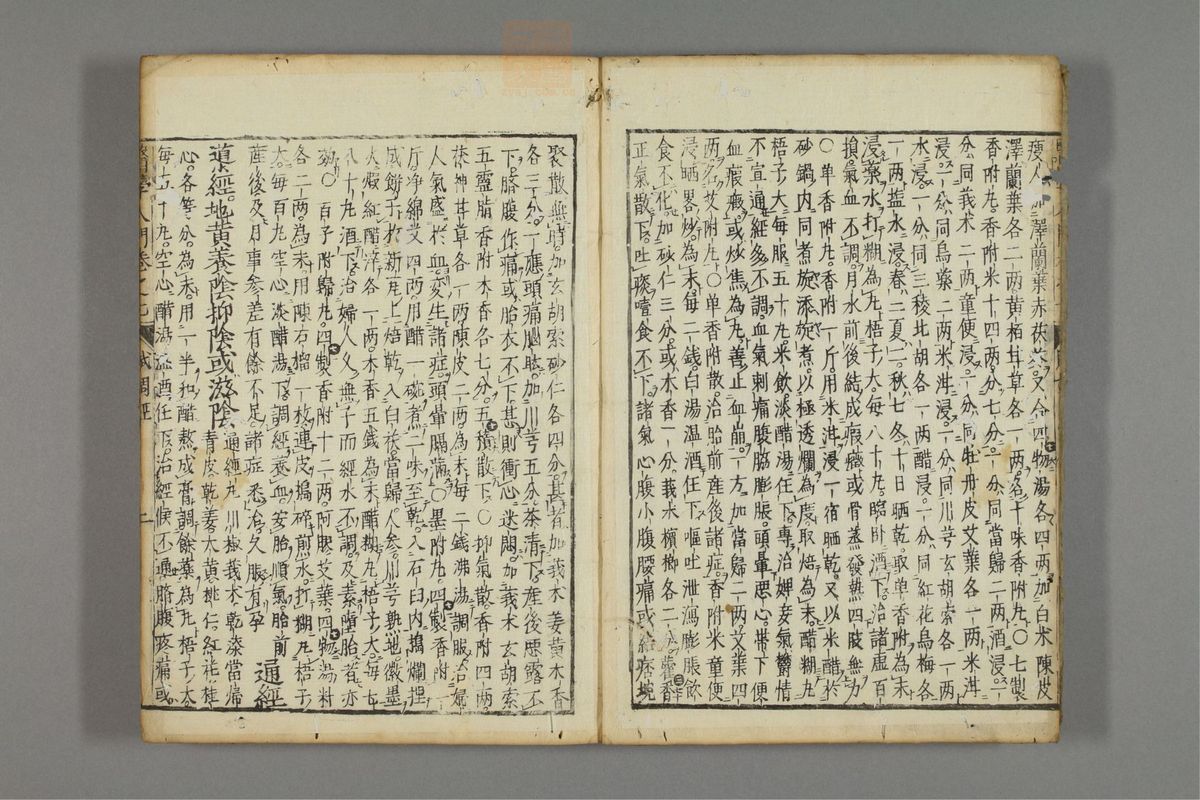 瘦人加澤蘭葉赤茯苓又合四物湯各四兩加白朮陳皮
澤蘭葉各二兩黃栢甘草各一兩名十味香附丸〇七製
香附丸香附米十四兩分七分一分同當歸二兩酒浸一
分同莪朮二兩童便浸一分同牡丹皮艾葉各一兩米泔
浸一分同烏藥二兩米泔浸一分同川芎玄胡索各一兩
水浸一分同三稜柴胡各一兩醋浸一分同紅花烏梅各
一兩塩水浸春二夏一秋七冬十日晒乾取單香附為末
浸藥水打糊為丸梧子大每八十丸臨卧酒下治諸虛百
損氣血不調月水前後結成瘕癥或骨蒸發熱四肢無力
〇單香附丸香附一斤用米泔浸一宿晒乾又以米醋於
砂鍋內同煮旋添旋煮以極透爛為度取焙為末醋糊丸
梧子大每服五十丸米飲淡醋湯任下專治婢妾氣欝情
不宣通經多不調血氣刺痛腹脇膨脹頭暈惡心帶下便
血瘕癥或炒焦為丸善止血崩一方加當歸二兩艾葉四
兩名艾附丸〇單香附散治胎前産後諸症香附米童便
浸晒畧炒為末每二錢白湯温酒任下嘔吐泄瀉膨脹飲
食不化加砂仁三分或木香一分莪朮檳榔各二分藿香
正氣散下吐痰噎食不下諸氣心腹小腹腰痛或結痞塊
聚散無時加玄胡索砂仁各四分甚者加莪朮姜黃木香
各三分一應頭痛腦痰加川芎五分茶清下産後惡露不
下臍腹作痛或胎衣不下甚則衝心迷悶加莪朮玄胡索
五靈脂香附木香各七分五積散下〇抑氣散香附四兩
茯神甘草各一兩陳皮二兩為末每二錢沸湯調服治婦
人氣盛於血變生諸症頭暈膈滿〇墨附丸四製香附一
斤淨綿艾四兩用醋一碗煮二味至乾入石臼內搗爛捏
成餅子於新瓦上焙乾入白茯當歸人參川芎熟地徽墨
火煆紅醋淬各一兩木香五錢為末醋糊丸梧子大每七
八十丸酒下治婦人久無子而經水不調及素墮胎者亦
効〇百子附歸丸四製香附十二兩阿膠艾葉四物湯料
各二兩為末用陳石榴一枚連皮搗碎煎水打糊丸梧子
大每百丸空心淡醋湯下調經養血安胎順氣胎前
産後及月事參差有餘不足諸症悉治久服有孕 通經
道經地黃養陰抑陰或滋陰通經丸川椒莪朮乾漆當歸
青皮乾姜大黃桃仁紅花桂
心各等分為末用一半和醋熬成膏調餘藥為丸梧子大
每五十丸空心醋湯温酒任下治經候不通臍腹疼痛或
醫學入門卷之七 試調經 一